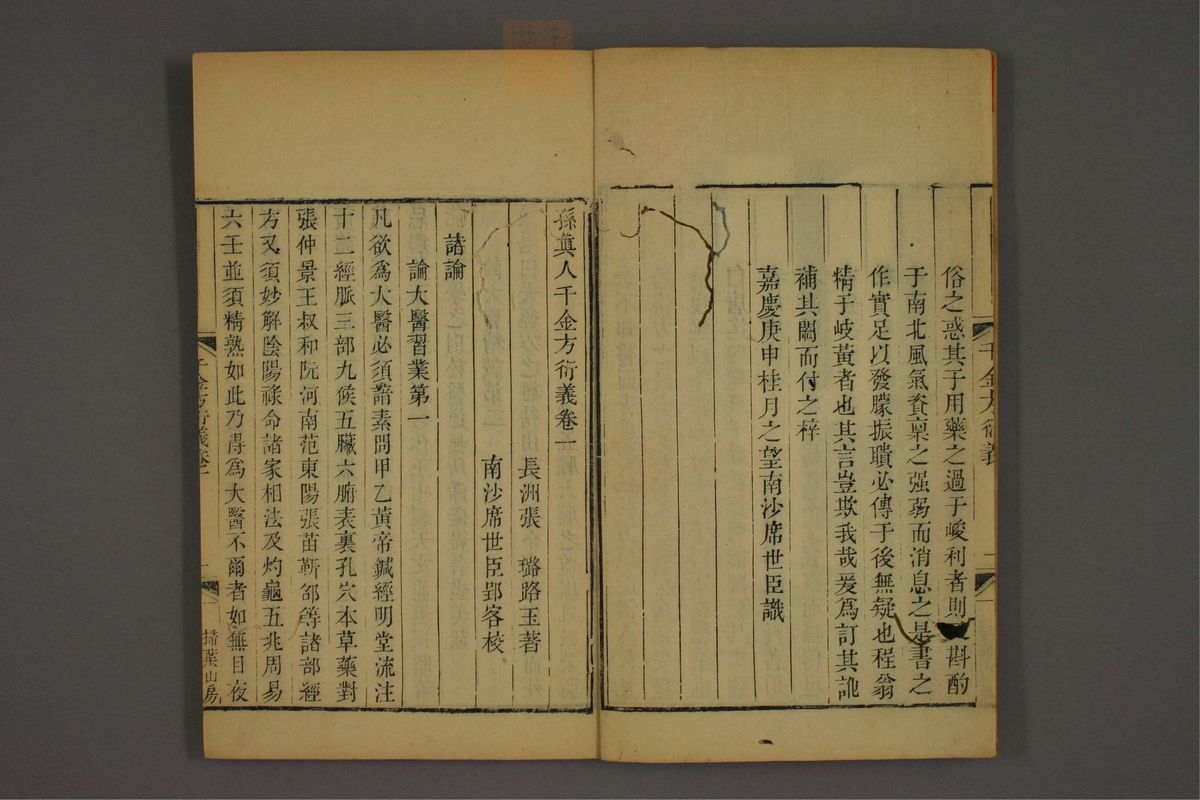 俗之惑其于用藥之過于峻利者則斟酌
于南北風氣資稟之强弱而消息之是書之
作實足以發朦振聵必傳于後無疑也程翁
精于岐黃者也其言豈欺我哉爰爲訂其訛
補其闕而付之梓
嘉慶庚申桂月之望南沙席世臣識
千金方衍義
二
孫眞人千金方衍義卷一
長洲張璐路玉著
南沙席世臣郢客校
諸論
論大醫習業第一
凡欲爲大醫必須諳素問甲乙黃帝鍼經明堂流注
十二經脈三部九候五臟六腑表裏孔穴本草藥對
張仲景王叔和阮河南范東陽張苗靳邵等諸部經
方又須妙解陰陽祿命諸家相法及灼龜五兆周易
六壬並須精熟如此乃得爲大醫不爾者如無目夜
千金方衍義卷一
一
掃葉山房